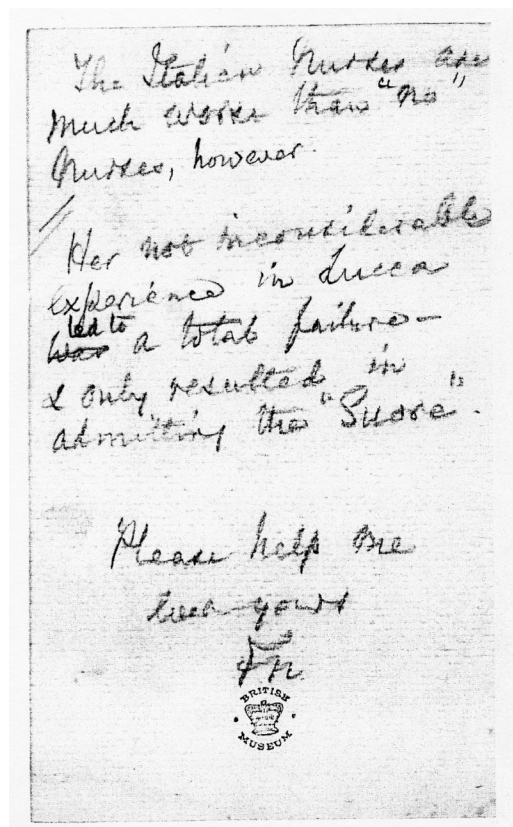 The Italian Nurses are
much worse than "no"
Nurses, however.
Her not inconsiderable
experience in Lucca
led to
was a total failure -
& only resulted in
admitting the "Suore".
Please help me
yours
FN
BRITISH
MUSEUM